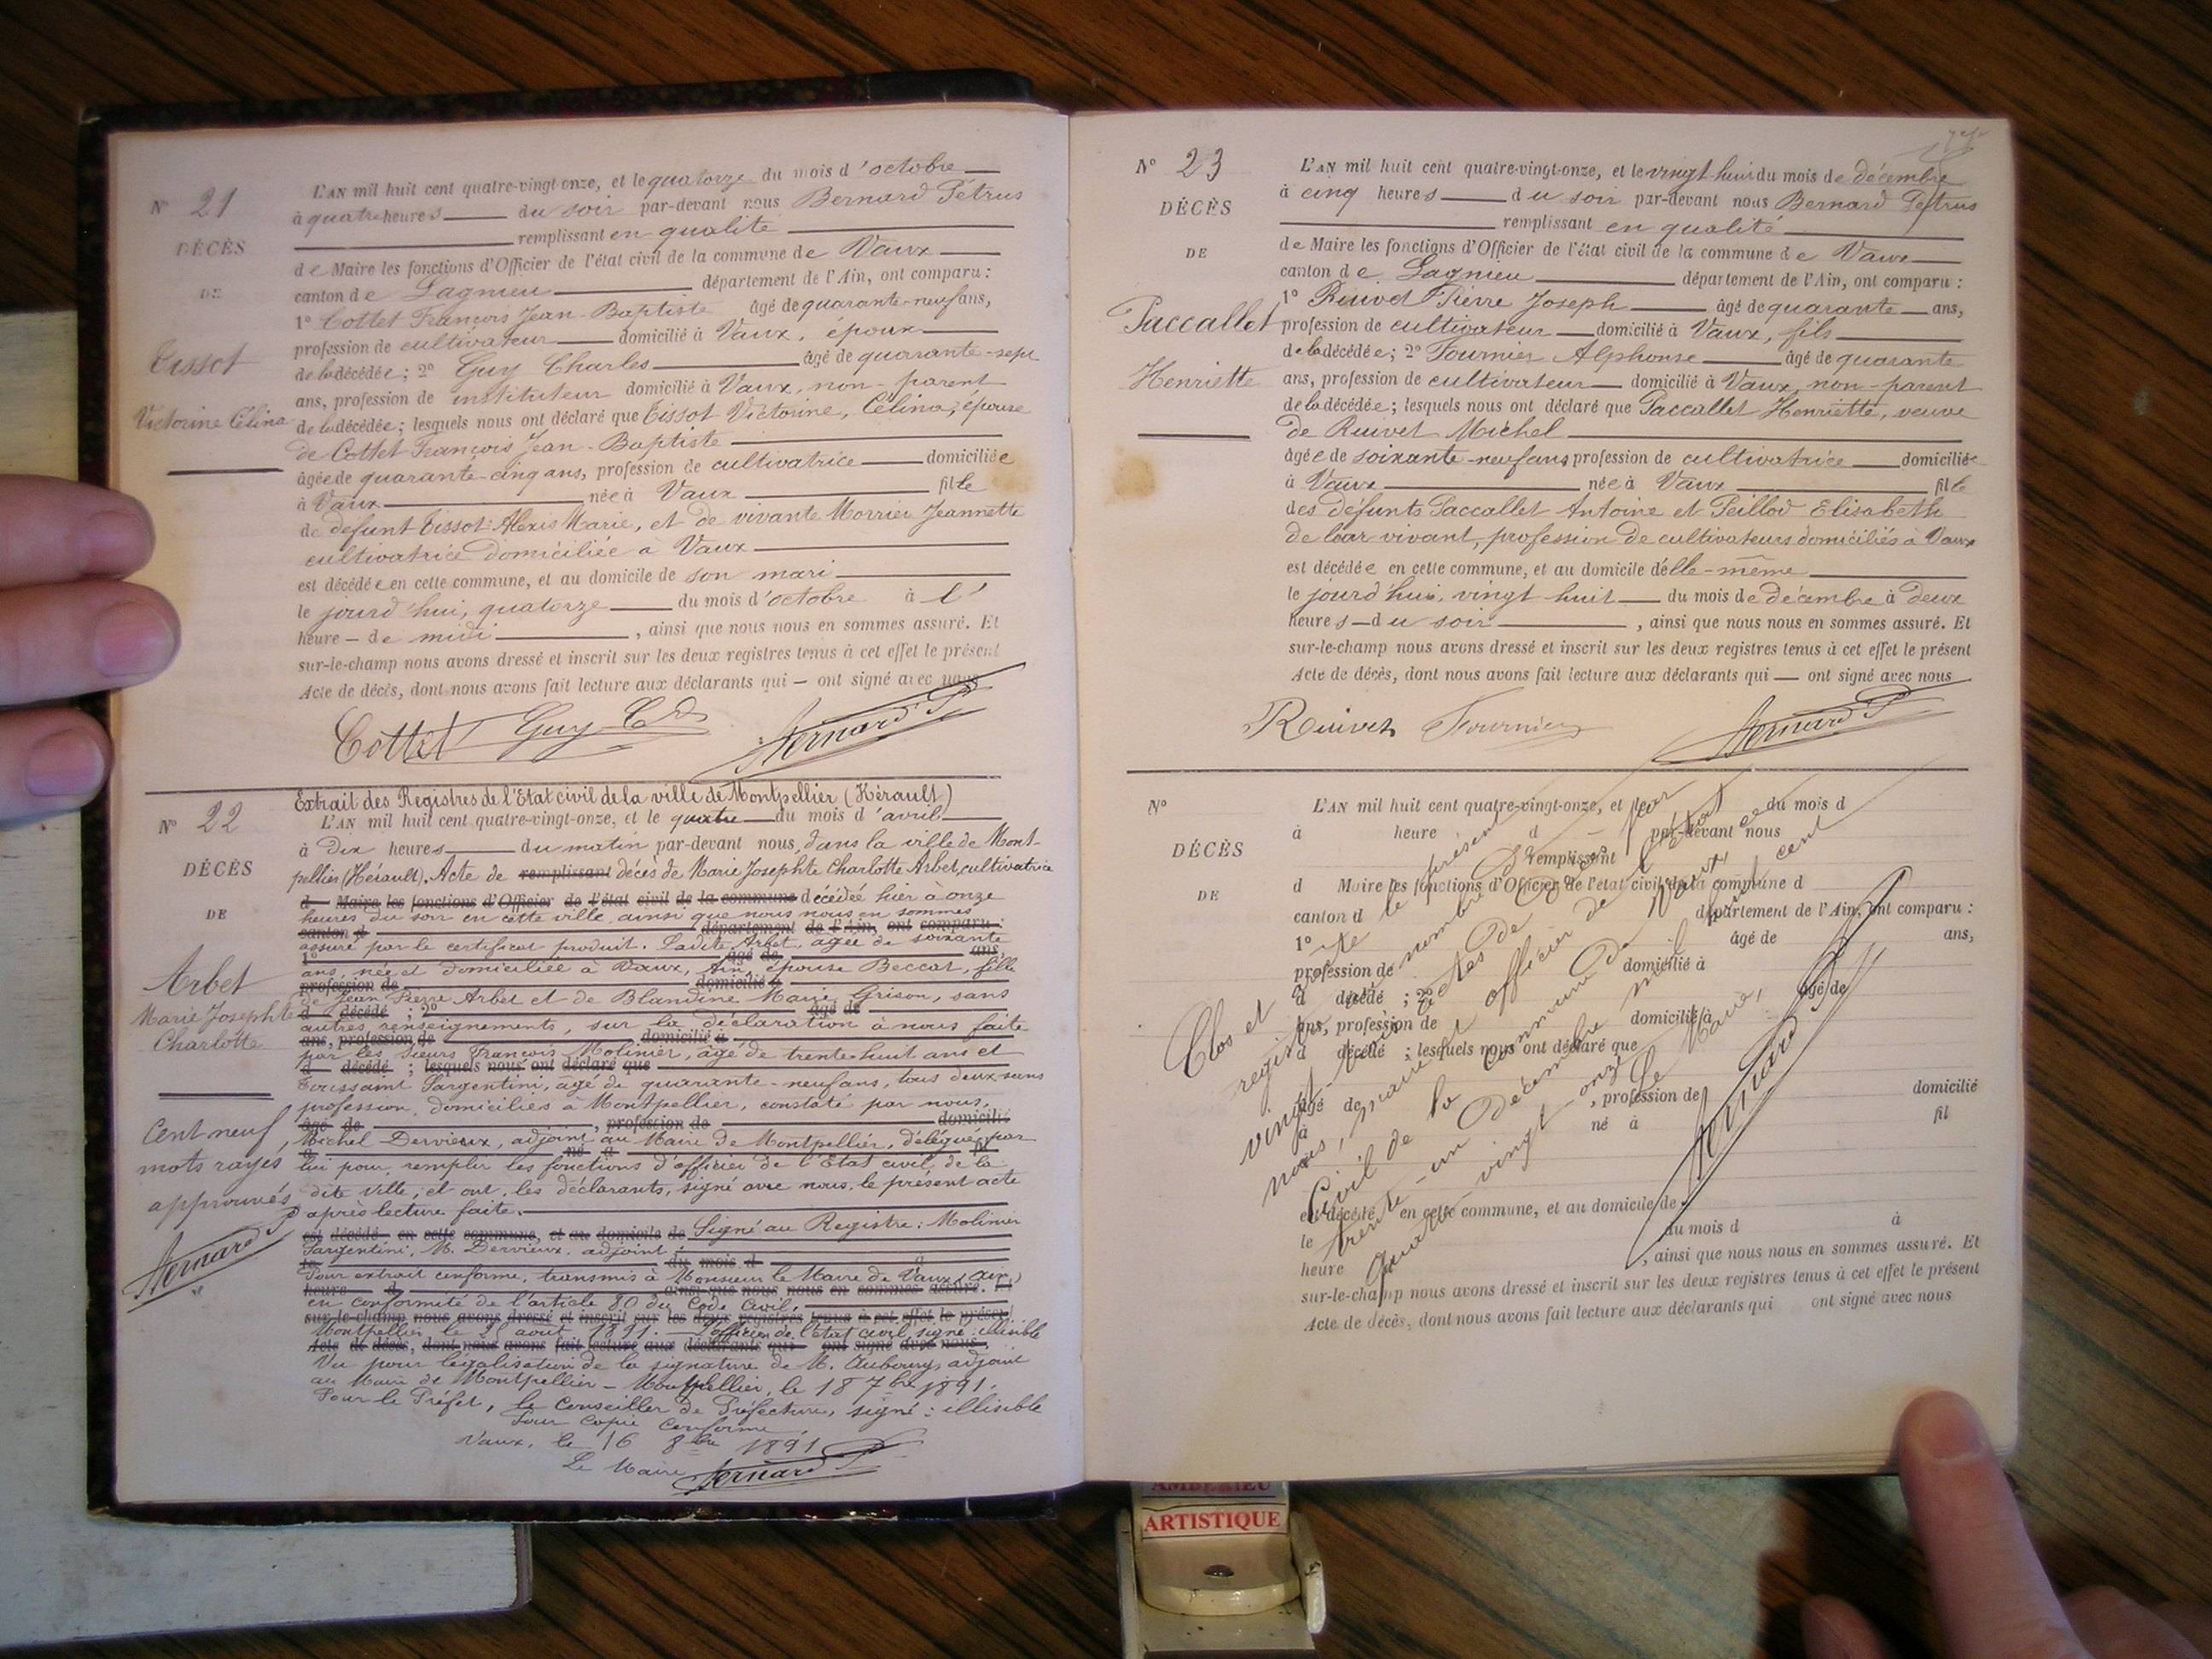 N° 21
DÉCÈS
DE
Tissot
Victorine Célina
L'AN mil huit cent quatre-vingt-onze, et le quatorze du mois d'octobre
à quatre heures du soir par-devant nous Bernard Pétrus
remplissant en qualité
de Maire les fonctions d'Officier de l'état civil de la commune de Vaux
canton de Lagnieu département de l'Ain, ont comparu :
1° Cottet François Jean-Baptiste âgé de quarante-neuf ans,
profession de cultivateur domicilié à Vaux, époux
de la décédée ; 2° Guy Charles âgé de quarante-sept
ans, profession de instituteur domicilié à Vaux, non-parent
de la décédée ; lesquels nous ont déclaré que Tissot Victorine, Célina, épouse
de Cottet François Jean-Baptiste
âgée de quarante-cinq ans, profession de cultivatrice domiciliée
à Vaux née à Vaux fille
de défunt Tissot Alexis Marie, et de vivante Morrier Jeannette
cultivatrice domiciliée à Vaux
est décédée en cette commune, et au domicile de son mari
le jourd'hui, quatorze du mois d'octobre à l'
heure - de midi , ainsi que nous nous en sommes assuré. Et
sur-le-champ nous avons dressé et inscrit sur les deux registres tenus à cet effet le présent
Acte de décès, dont nous avons fait lecture aux déclarants qui — ont signé avec nous
Cottet Guy Bernard P
N° 22
DÉCÈS
DE
Arbet
Marie Josephte
Charlotte
Cent neuf
mots rayés
approuvés
Bernard P
Extrait des Registres de l'Etat civil de la ville de Montpellier (Hérault)
L'AN mil huit cent quatre-vingt-onze, et le quatre du mois d'avril
à dix heures du matin par-devant nous, dans la ville de Mont-
pellier (Hérault). Acte de remplissant décès de Marie Josephte Charlotte Arbet, cultivatrice
d Maire les fonctions d'Officier de l'état civil de la commune décédée hier à onze
heures du soir en cette ville, ainsi que nous nous en sommes
canton d département de l'Ain, ont comparu :
assuré par le certificat produit. Ladite Arbet, agée de soixante
1° âgé de ans,
ans, née et domiciliée à Vaux, Ain, épouse Beccat, fille
profession de domicilié à
de Jean Pierre Arbet et de Blandine Marie Grison, sans
d décédé ; 2° âgé de
autres renseignements, sur la déclaration à nous faite
ans, profession de domicilié à
par les sieurs François Molinier, âgé de trente-huit ans et
d décédé ; lesquels nous ont déclaré que
Toussaint Sargentini, âgé de quarante-neuf ans, tous deux sans
profession, domiciliés à Montpellier, constaté par nous,
âgé de , profession de domicilié
Michel Dervieux, adjoint au Maire de Montpellier, délégué par
à né à fil
lui pour remplir les fonctions d'officier de l'Etat civil de la
dite ville, et ont, les déclarants, signé avec nous, le présent acte
après lecture faite.
est décédé en cette commune, et au domicile de Signé au Registre : Molinier
Sargentini, M. Dervieux, adjoint.
le du mois d à
Pour extrait conforme, transmis à Monsieur le Maire de Vaux (Ain)
heure d ainsi que nous nous en sommes assuré. Et
en conformité de l'article 80 du Code Civil.
sur-le-champ nous avons dressé et inscrit sur les deux registres tenus à cet effet le présent
Montpellier le août 1891. L'officier de l'Etat civil, signé : illisible
Acte de décès, dont nous avons fait lecture aux déclarants qui ont signé avec nous.
Vu pour légalisation de la signature de M. adjoint
au Maire de Montpellier - Montpellier, le 18 7bre 1891.
Pour le Préfet, le Conseiller de Préfecture, signé : illisible
Pour copie conforme
Vaux, le 16 8bre 1891
Le Maire Bernard P
N° 23
DÉCÈS
DE
Paccallet
Henriette
L'AN mil huit cent quatre-vingt-onze, et le vingt-huit du mois de décembre
à cinq heures du soir par-devant nous Bernard Pétrus
remplissant en qualité
de Maire les fonctions d'Officier de l'état civil de la commune de Vaux
canton de Lagnieu département de l'Ain, ont comparu :
1° Ruivet Pierre Joseph âgé de quarante ans,
profession de cultivateur domicilié à Vaux, fils
de la décédée ; 2° Fournier Alphonse âgé de quarante
ans, profession de cultivateur domicilié à Vaux, non-parent
de la décédée ; lesquels nous ont déclaré que Paccallet Henriette, veuve
de Ruivet Michel
âgée de soixante-neuf ans profession de cultivatrice domiciliée
à Vaux née à Vaux fille
des défunts Paccallet Antoine et Peillod Elisabeth
de leur vivant, profession de cultivateurs domiciliés à Vaux
est décédée en cette commune, et au domicile d'elle-même
le jourd'hui, vingt-huit du mois de décembre à deux
heures - du soir , ainsi que nous nous en sommes assuré. Et
sur-le-champ nous avons dressé et inscrit sur les deux registres tenus à cet effet le présent
Acte de décès, dont nous avons fait lecture aux déclarants qui — ont signé avec nous
Ruivet Fournier Bernard P
N°
DÉCÈS
DE
L'AN mil huit cent quatre-vingt-onze, et le du mois d
à heure d par-devant nous
remplissant
d Maire les fonctions d'Officier de l'état civil de la commune d
canton d département de l'Ain, ont comparu :
1° âgé de ans,
profession de domicilié à
d décédé ; 2° âgé de
ans, profession de domicilié à
d décédé ; lesquels nous ont déclaré que
âgé de , profession de domicilié
à né à fil
est décédé en cette commune, et au domicile de
le du mois d à
heure , ainsi que nous nous en sommes assuré. Et
sur-le-champ nous avons dressé et inscrit sur les deux registres tenus à cet effet le présent
Acte de décès, dont nous avons fait lecture aux déclarants qui ont signé avec nous
Clos et le présent
registre nombre de
vingt-trois actes de Décès par
nous, maire et officier de l'Etat
Civil de la commune de Vaux, ce
trente-un Décembre mil huit cent
quatre-vingt-onze
Le Maire,
Bernard P
AMBERIEU
ARTISTIQUE